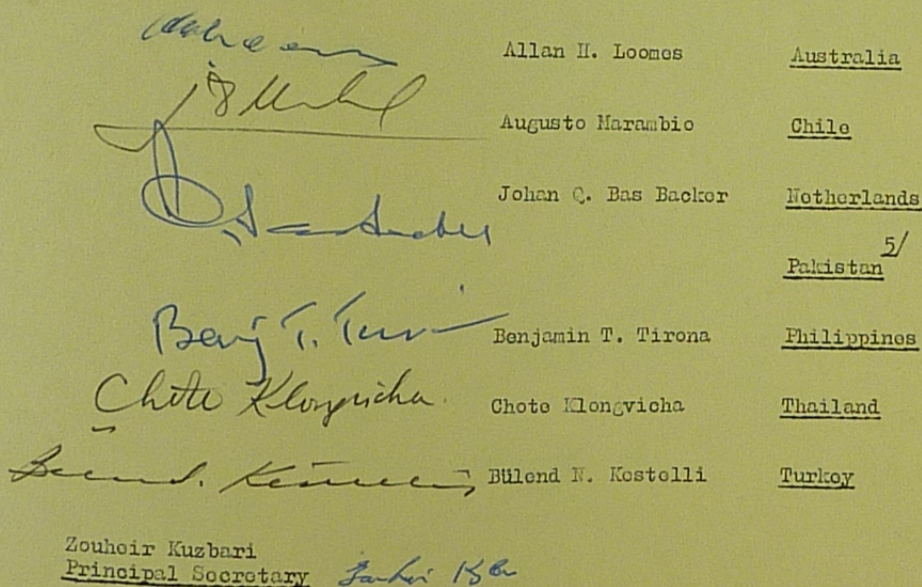 Allan H. Loomes Australia
Augusto Marambio Chile
Johan C. Bas Backer Netherlands
Pakistan 5/
Benj T. Benjamin T. Tirona Philippines
Chote Klongvicha Chote Klongvicha Thailand
Bülend N. Kestelli Turkey
Zouheir Kuzbari
Principal Secretary